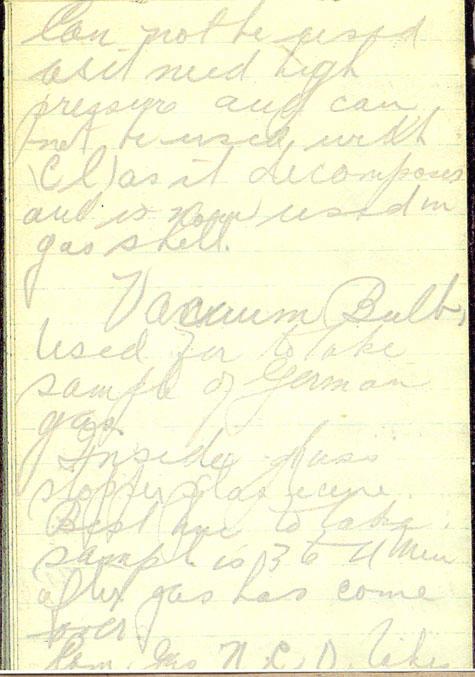 Can not be used
as it need high
pressure and can
not be used with
(Cl) as it decomposes
and is now used in
gas shell.
Vacuum Bulb,
Used for to take
sample of German
gas.
Inside glass
stopper glas
Best time to take
sample is 3 to 4 Min
after gas has come
over.
N. C. O. takes